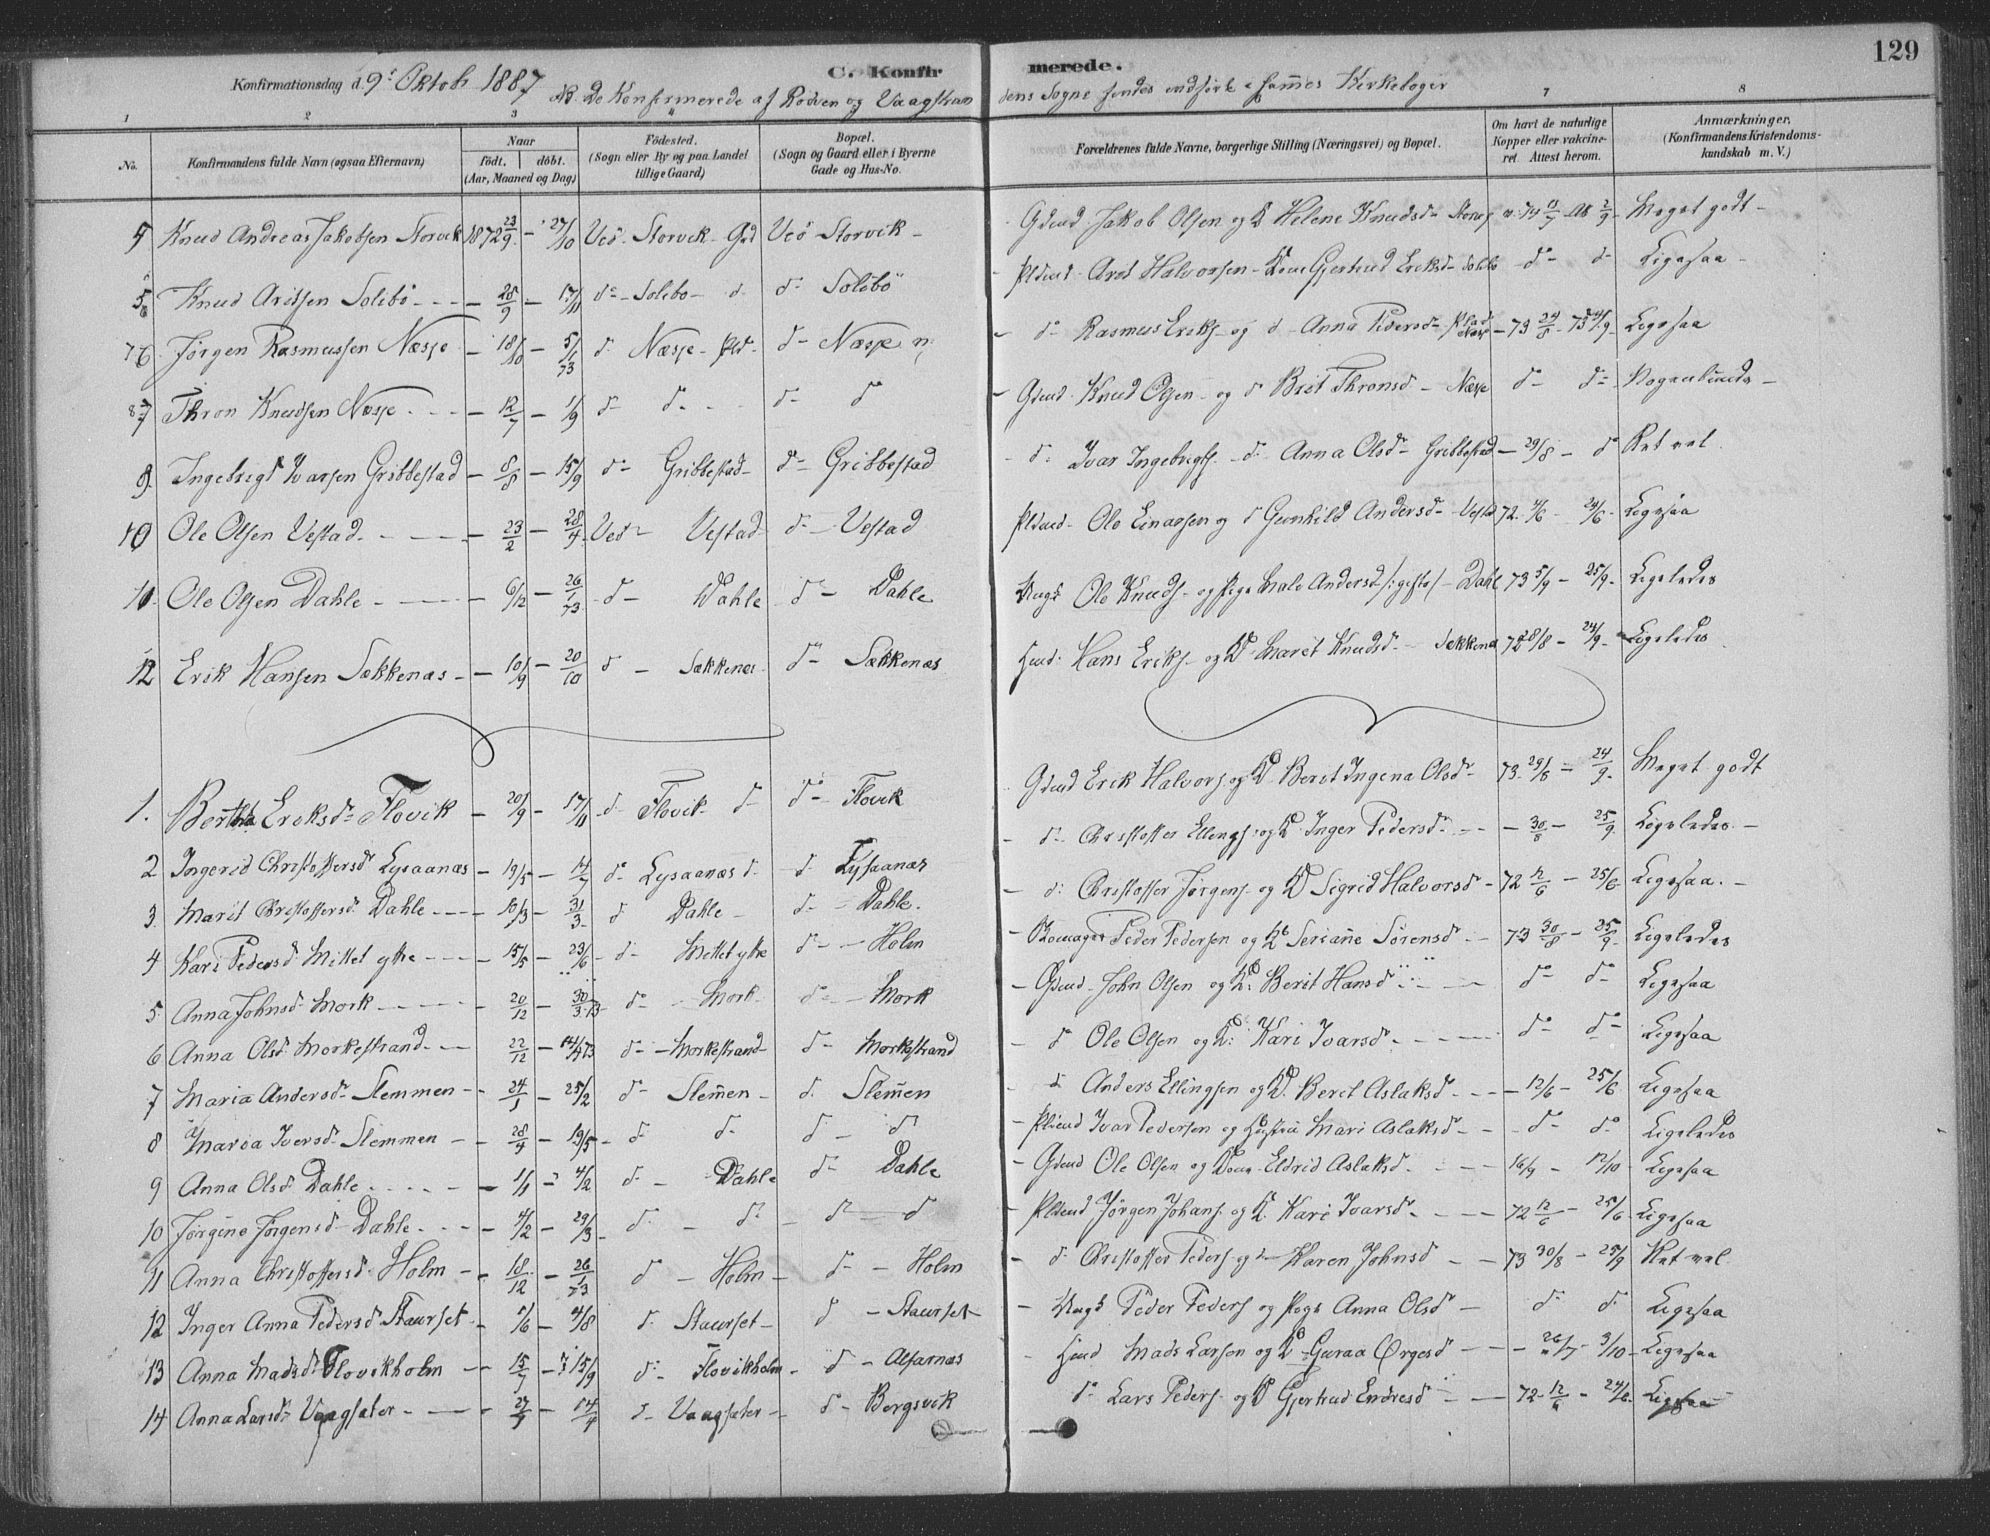 129
Konfirmationsdag d. 9: Oktob 1887 C. Konfirmerede.
NB. De Konfirmerede af Rødven og Vaagstrandens Sogne findes indførte i sammes Kirkebøger
1 2 3 7 8
No. Konfirmandens fulde Navn (ogsaa Efternavn) Naar født. døbt. (Aar, Maaned og Dag) Fødested. (Sogn eller By og paa Landet tillige Gaard) Bopæl. (Sogn og Gaard eller i Byerne Gade og Hus-No. Forældrenes fulde Navne, borgerlige Stilling (Næringsvei) og Bopæl. Om havt de naturlige Kopper eller vakcineret Attest herom. Anmærkninger. (Konfirmandens Kristendomskundskab m. V.)
5 Knud Andreas Jakobsen Storvik 1872 23/9 - 27/10 Veö - Storvik - Grd Veö Storvik - Gdmd Jakob Olsen og K Helene Knudsdr Meget godt -
Knud Aritsen Solibö - 28/9 - 17/11 do - Solibo - d. do Solibö Pldmd Arit Halvorsen - Kone Gjertrud Eriksdr do - d - Ligesaa -
6 Jørgen Rasmussen Næsje - 18/10 - 5/1 73 d. Næsje - Pld - d - Næsje - do Rasmus Eriks. og d - Anna Pedersdr - 73 24/8 - Ligesaa
7 Thron Knudsen Næsje - 12/7 - 1/9 d - d. - do d Gdmd Knud Olsen - og d Brit Thronsd - Næsje do do Nogenlunde -
9 Ingebrigt Ivarsen Gribbestad - 8/8 - 15/9 do Gribbestad - do - Gribbestad - d: Ivar Ingebrigts. - d: Anna Olsdr Gribbestad - 29/8 - do Ret vel.
10 Ole Olsen Vestad - 23/2 - 28/4 Veö - Vestad - d - Vestad Pldmd - Ole Einarsen og d Gunhild Andersdr - Ligesaa
11 Ole Olsen Dahle - 6/12 - 26/1 73 d - Dahle d - Dahle Ungk Ole Knuds. og Pige Male Andersd /:gifte/ - Dahl 73 5/9 - 25/9 - Ligeledes
12 Erik Hansen Sækkenæs - 10/9 - 20/10 d - Sækkenes do Sækkenæs Hmd: Hans Eriks. og K Marit Knudsd - 72 28/8 - 24/9 - Ligeledes
1. Bertha Eriksdr Flovik - 20/9 - 17/11 d - Flovik - d do - Flovik Gdmd Erik Halvors. og K Berit Ingena Olsdr 73 29/8 - 24/9 - Meget godt
2 Ingerid Christoffersdr Lysaanæs - 19/5 - 14/7 do Lysaanæs d - d Lysaanæs - d: Christoffer Ellings. og K Inger Pedersdr - 30/8 - 25/9 - Ligeledes -
3. Marit Christoffersd. Dahle - 10/3 - 31/3 - d Dahle - do - Dahle. - d: Christoffer Jørgens. og K Sigrid Halvorsd - 72 12/6 - 25/6 - Ligesaa. -
4 Kari Pedersd Mittet ytre - 15/5 - 23/6 - d - Mittet ytre do - Holm - Skomager Peder Pedersen og K Seriane Sørensd - 73 30/8 - 25/9 - Ligeledes
5 Anna Johnsd Mork - 20/12 - 30/3 73 do - Mork - do - Mork - Gdmd John Olsen og K: Berit Hansd - do do Ligesaa
6 Anna Olsd Morkestrand - 22/12 - do - Morkestrand - do Morkestrand - d Ole Olsen og K: Kari Ivarsdr - do do Ligesaa
7 Maria Andersdr Slemmen - 24/1 - 25/2 do - Slem̄en - d. Slem̄en - d Anders Ellingsen og K. Berit Aslaksd - 12/6 - 25/6 - Ligesaa
8 Maria Iversdr Slemmen - 28/4 - 19/5 - d d - d - d Pldmd Ivar Pedersen og Hustru Mari Aslaksd - do do Ligeledes
9 Anna Olsd Dahle - 1/1 - 4/2 d. - Dahle do Dahle - Gdmd Ole Olsen og Kone Eldrid Aslaksd. - 16/9 - 12/10 - Ligesaa
10 Jørgine Jørgensd Dahle - 4/2 - 29/3 - d: - d - d - d Pldmd Jørgen Johans. og K. Kari Ivarsdr - 72 12/6 - 25/6 - Ligesaa
11 Anna Christoffersd Holm - 18/12 - 26/1 73 d - Holm - d - Holm - d. Christoffer Peders. og Karen Johnsd - 73 30/8 - 25/9 Ret vel
12 Inger Anna Pedersd Staurset - 1/6 - 4/8 d: Staurset - d - Staurset - Ungk Peder Peders. og Pige Anna Olsd - d d Ligesaa
13 Anna Madsd Flovikholm - 15/7 - 15/9 d: - Flovikholm - d - Alfarnæs - Hmd Mads Larsen og K Guraa Ørgesd - 26/7 - 3/10 - Ligesaa
14 Anna Larsdr Vaagsæter - 27/7 - d - Vaagsæter - d - Bergsvik do Lars Peders. og K Gjertrud Endresd - 72 12/6 - 24/6 - Ligesaa